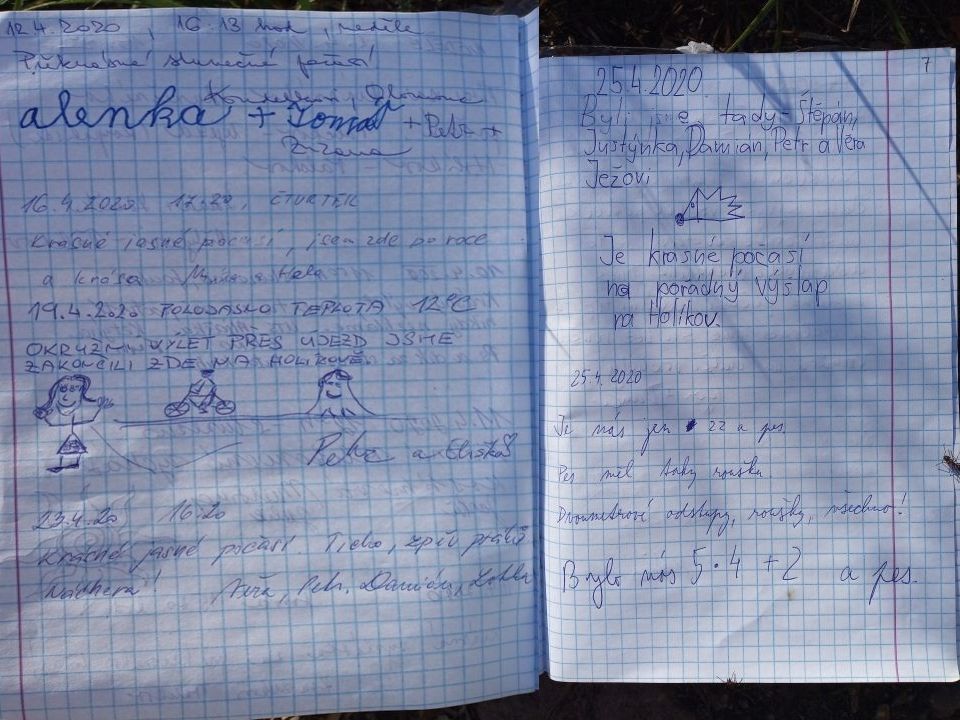 12.4.2020, 16.13 hod, neděle
Překrásné slunečné počasí
Olomouc
alenka + Tomáš + Petr +
Zuzana
16.4.2020 17:20, ČTVRTEK
Krásné jasné počasí, jsem zde po roce
a krása
19.4.2020 POLOJASNO TEPLOTA 12°C
OKRUŽNÍ VÝLET PŘES ÚJEZD JSME
ZAKONČILI ZDE NA HOLÍKOVĚ.
Petr a Eliška
23.4.20 16:20
Krásné jasné počasí. Ticho, zpěv ptáků
Nádhera! Petr, Daniela,
7
25.4.2020
Byli jsme tady - Štěpán,
Justýnka, Damian, Petr a Věra
Ježovi
Je krásné počasí
na pořádný výšlap
na Holíkov.
25.4.2020
Je nás jen 22 a pes.
Pes měl taky roušku
Dvoumetrové odstupy, roušky, všechno!
Bylo nás 5·4 +2 a pes.